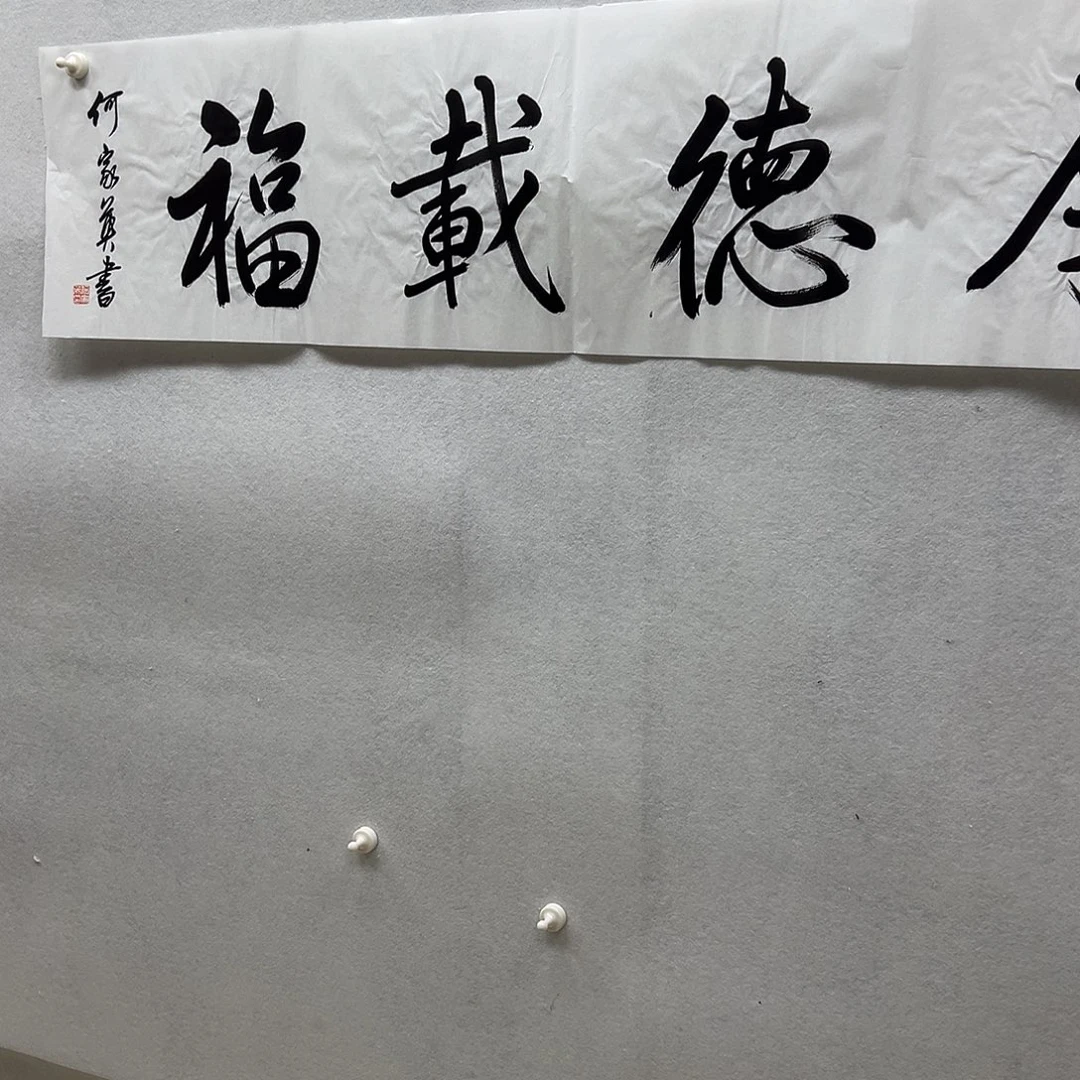 德載福
何家英書